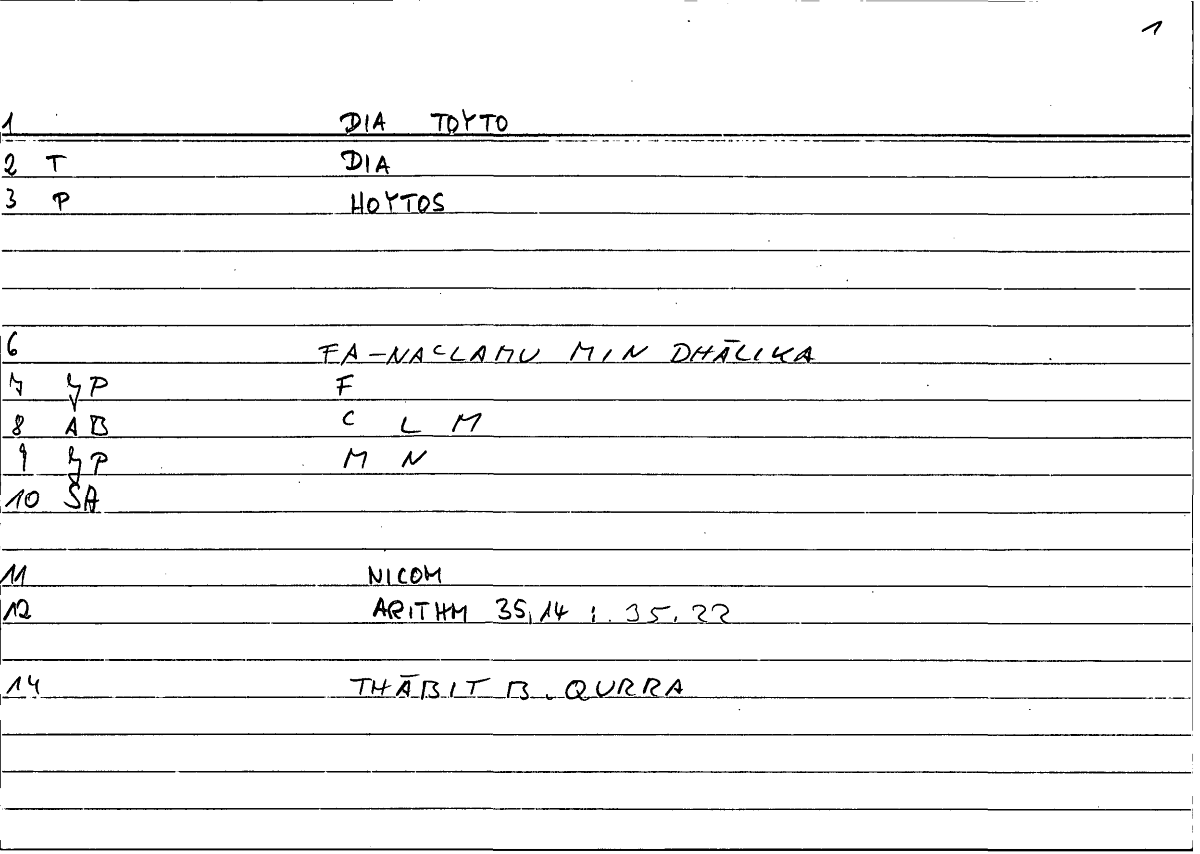 1
1 DIA TOYTO
2 T DIA
3 P HOYTOS
6 FA-NAᶜLAMU MIN DHĀLIKA
7 P F
8 AB ᶜ L M
9 P M N
10 ŠA
11 NICOM
12 ARITHM 35,14 : 35,22
14 THĀBIT B. QURRA